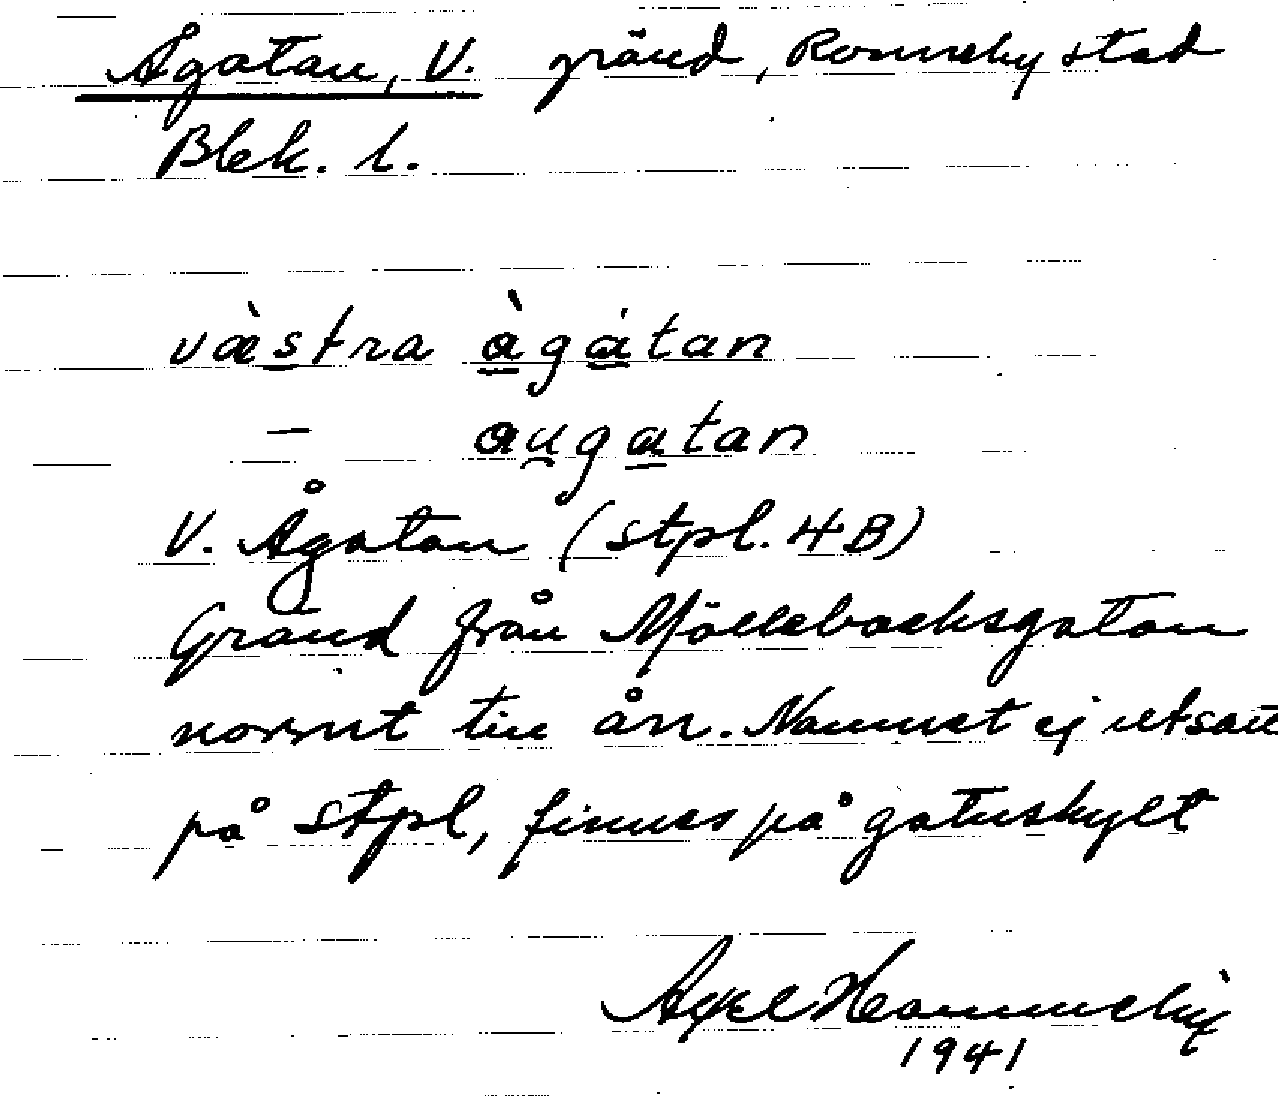 Ågatan, V. gränd, Ronneby stad
Blek. l.
væ̀stra àgátan
— augatan
V. Ågatan (stpl. 4B)
Gränd från Möllebacksgatan
norrut till ån. Namnet ej utsatt
på stpl, finnes på gatuskylt
Axel
1941